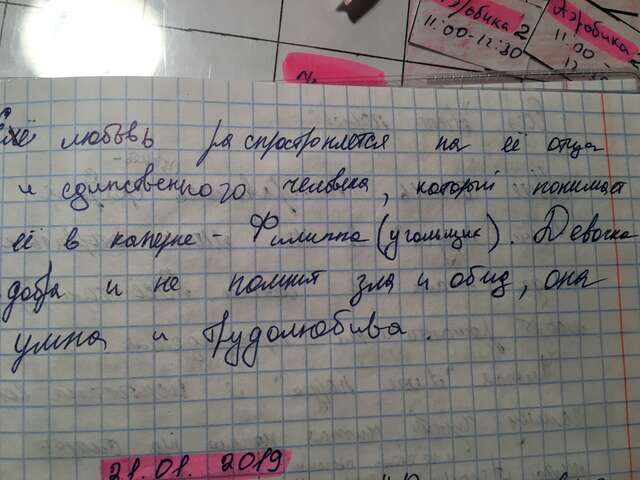 Аэробика 2
11:00-12:30
Аэробика
11:00 -
Её любовь распространяется на её отца
и единственного человека, который понимает
её в камерне - Филиппа (угольщик). Девочка
добра и не помнит зла и обид, она
умна и трудолюбива.
21.01. 2019